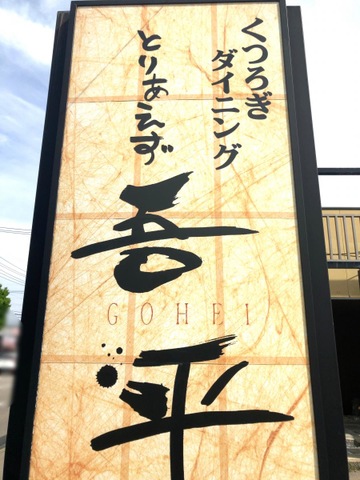 くつろぎ
ダイニング
とりあえず
吾平
GOHEI